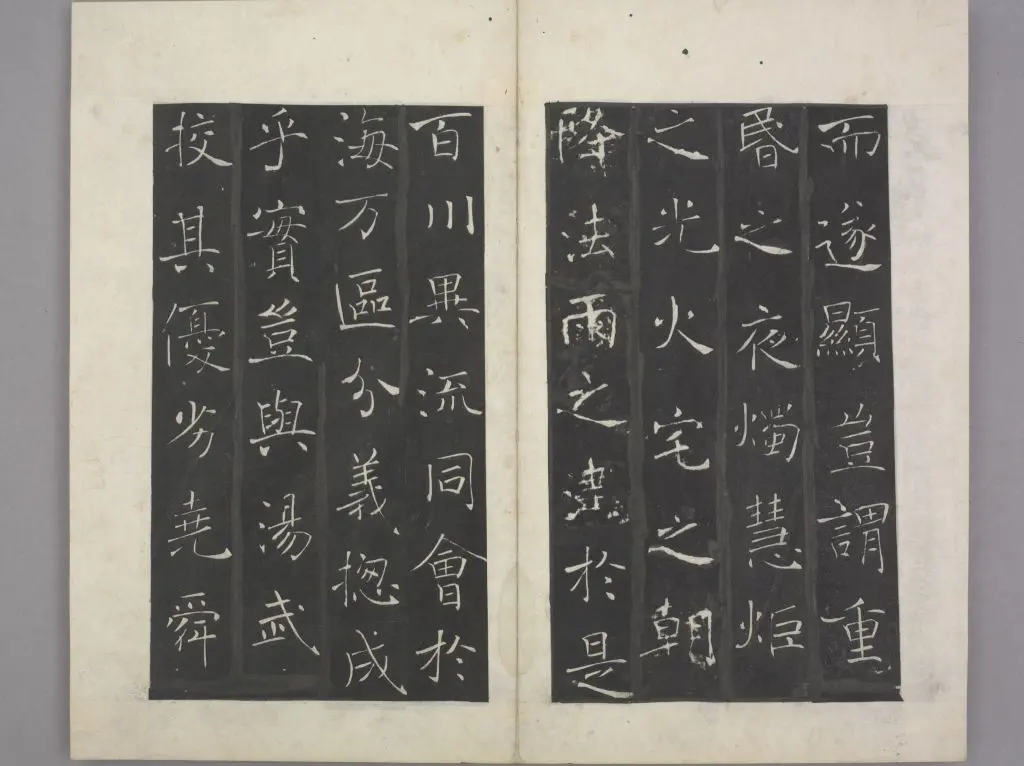 而遂顯豈謂重
昏之夜燭慧炬
之光火宅之朝
降法雨之澤於是
百川異流同會於
海万區分義揔成
乎實豈與湯武
挍其優劣堯舜